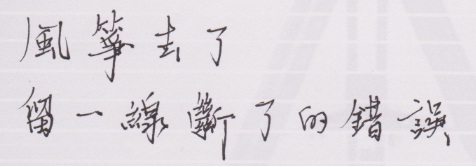 風箏去了
留一線斷了的錯誤